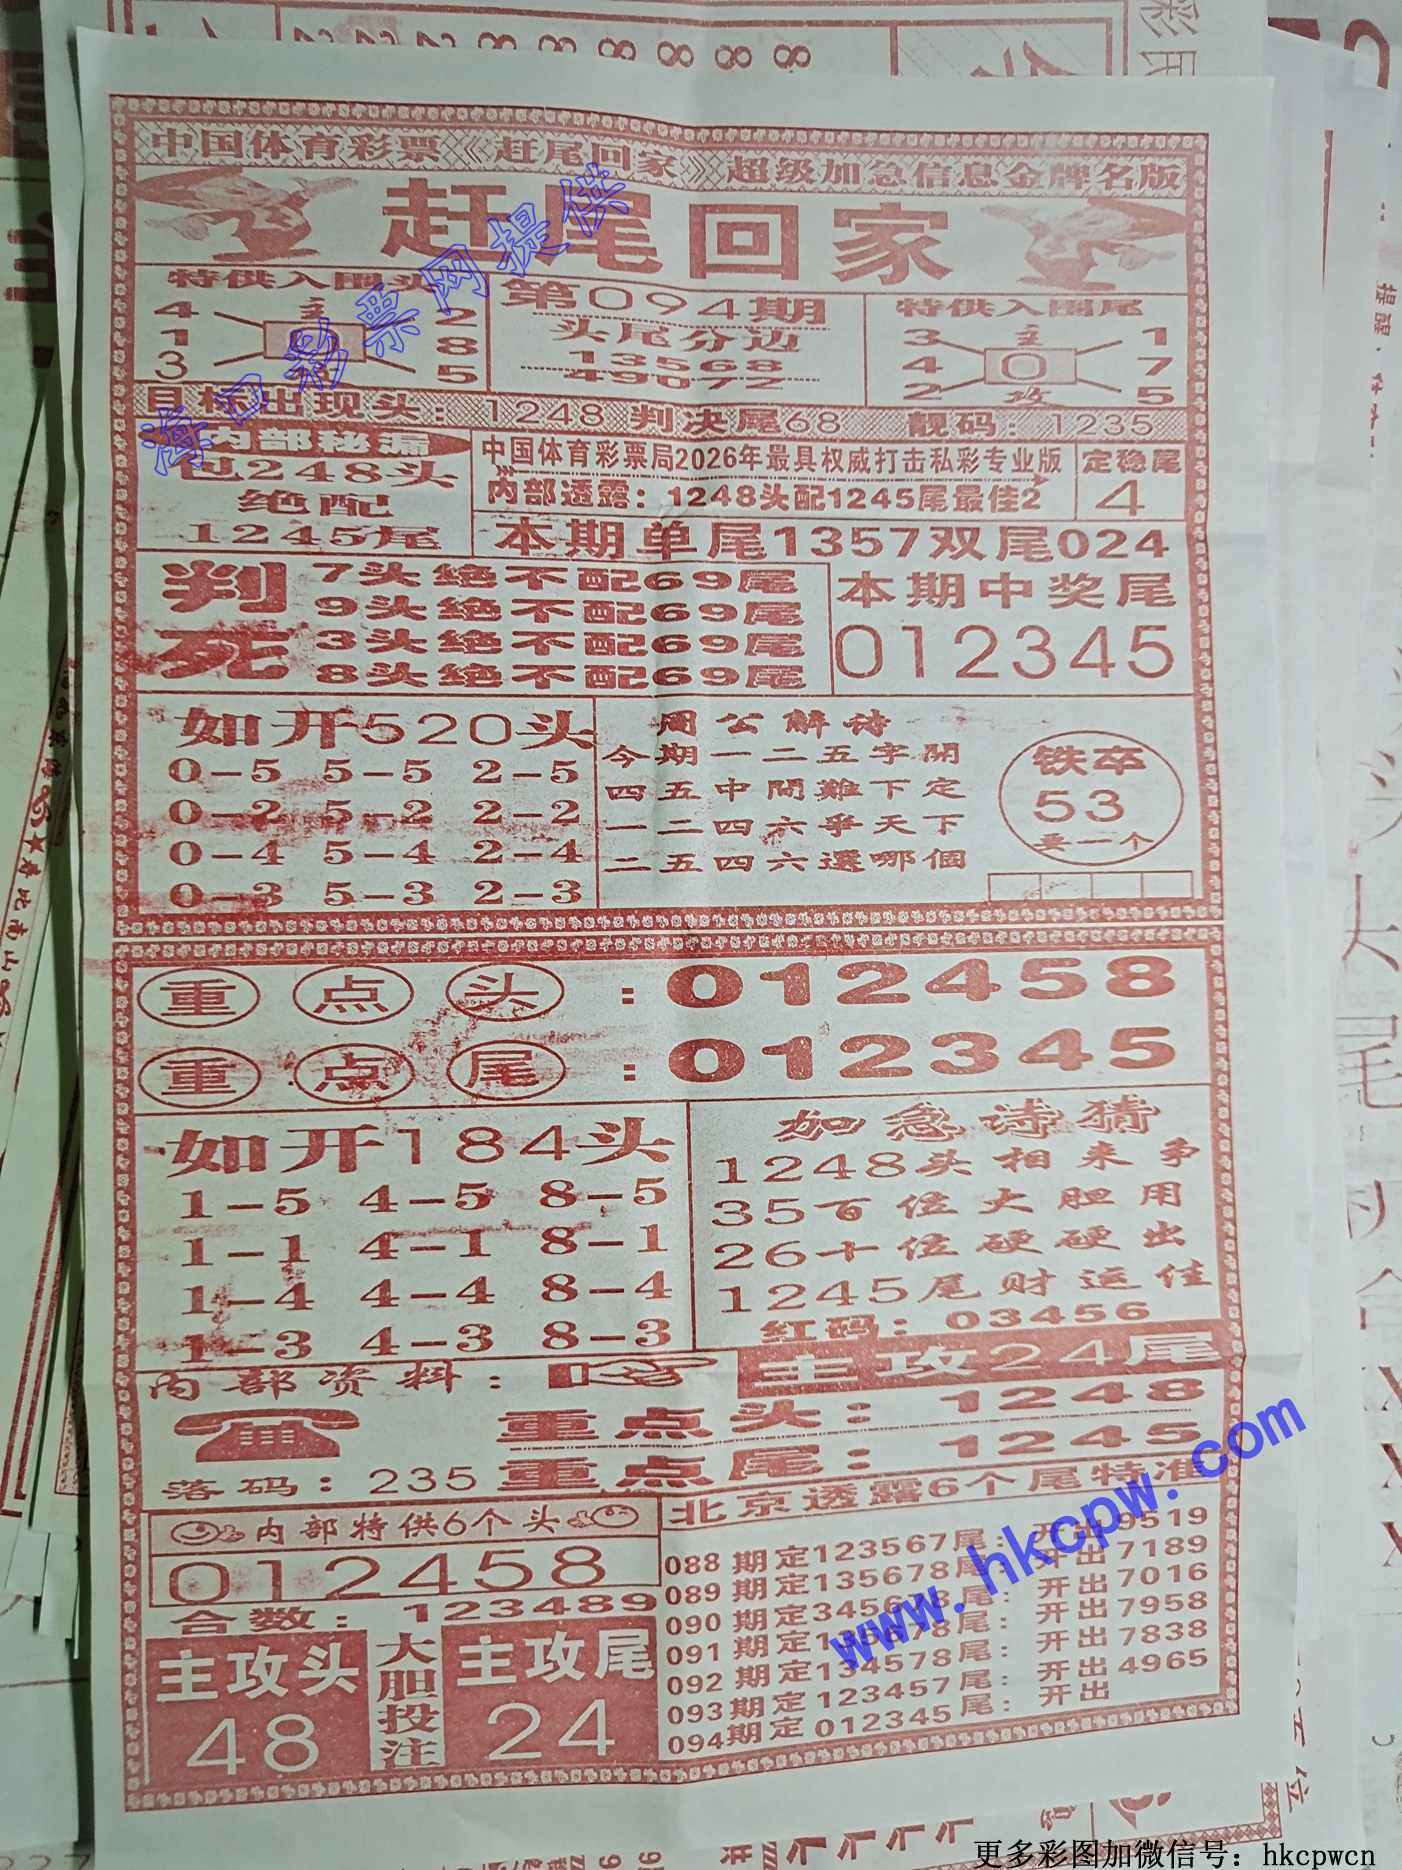 中国体育彩票《赶尾回家》超级加急信息金牌名版
赶尾回家
特供入围头
4 主 2
1 8
3 5
第094期
头尾分边
13568
49072
特供入围尾
3 主 1
4 0 7
2 攻 5
目标出现头：1248 判决尾68 靓码：1235
内部秘漏
包248头
绝配
1245尾
中国体育彩票局2026年最具权威打击私彩专业版
内部透露：1248头配1245尾最佳2
定稳尾
4
本期单尾1357双尾024
判死
7头绝不配69尾
9头绝不配69尾
3头绝不配69尾
8头绝不配69尾
本期中奖尾
012345
如开520头
0-5 5-5 2-5
0-2 5-2 2-2
0-4 5-4 2-4
0-3 5-3 2-3
周公解诗
今期一二五字開
四五中間難下定
一二四六爭天下
二五四六選哪個
铁卒
53
要一个
重点头：012458
重点尾：012345
如开184头
1-5 4-5 8-5
1-1 4-1 8-1
1-4 4-4 8-4
1-3 4-3 8-3
加急诗猜
1248头相来争
35百位大胆用
26十位硬硬出
1245尾财运佳
红码：03456
内部资料：
主攻24尾
重点头：1248
重点尾：1245
落码：235
内部特供6个头
012458
合数：123489
主攻头
48
大胆投注
主攻尾
24
北京透露6个尾特准
088期定123567尾：开出9519
089期定135678尾：开出7189
090期定345678尾：开出7016
091期定135678尾：开出7958
092期定134578尾：开出7838
093期定123457尾：开出4965
094期定012345尾：开出
海口彩票网提供
www.hkcpw.com
更多彩图加微信号：hkcpwcn